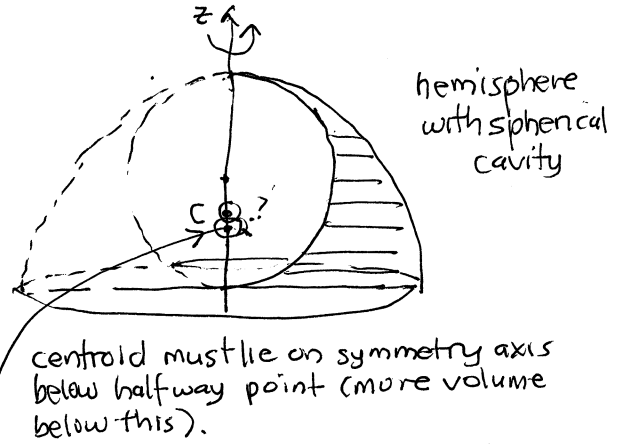 z
hemisphere
with spherical
cavity
C ?
centroid must lie on symmetry axis
below halfway point (more volume
below this).